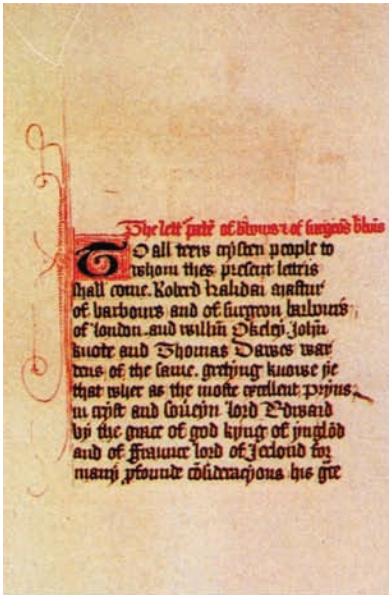 The lett patẽ of b'bours & of surgeõs b'b'is
To all trew crysten people to
whom thes present lettris
shall come. Roberd Halidai mastur
of barbours and of surgeon barbours
of london. and willm̃ Okeley. John̄
knote and Thomas Dawes war
dens of the same. gretyng knowe ye
that wher as the moste excellent pryns
in cryst and souẽyn lord Edward
by the grace of god kyng of ynglõd
and of Fraunce lord of Jerlond for
many p̃founde cõsideracyons his gre